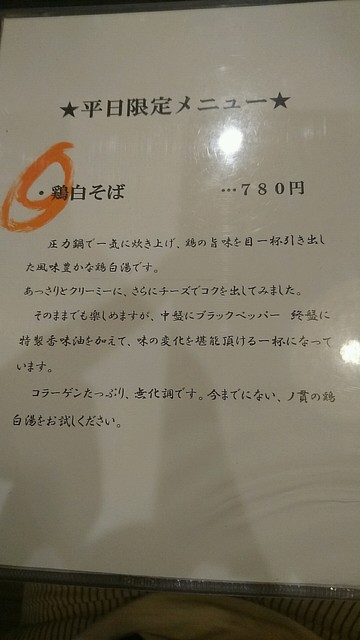 ★平日限定メニュー★
・鶏白そば …780円
圧力鍋で一気に炊き上げ、鶏の旨味を目一杯引き出し
た風味豊かな鶏白湯です。
あっさりとクリーミーに、さらにチーズでコクを出してみました。
そのままでも楽しめますが、中盤にブラックペッパー 終盤に
特製香味油を加えて、味の変化を堪能頂ける一杯になって
います。
コラーゲンたっぷり、無化調です。今までにない、ノ貫の鶏
白湯をお試しください。